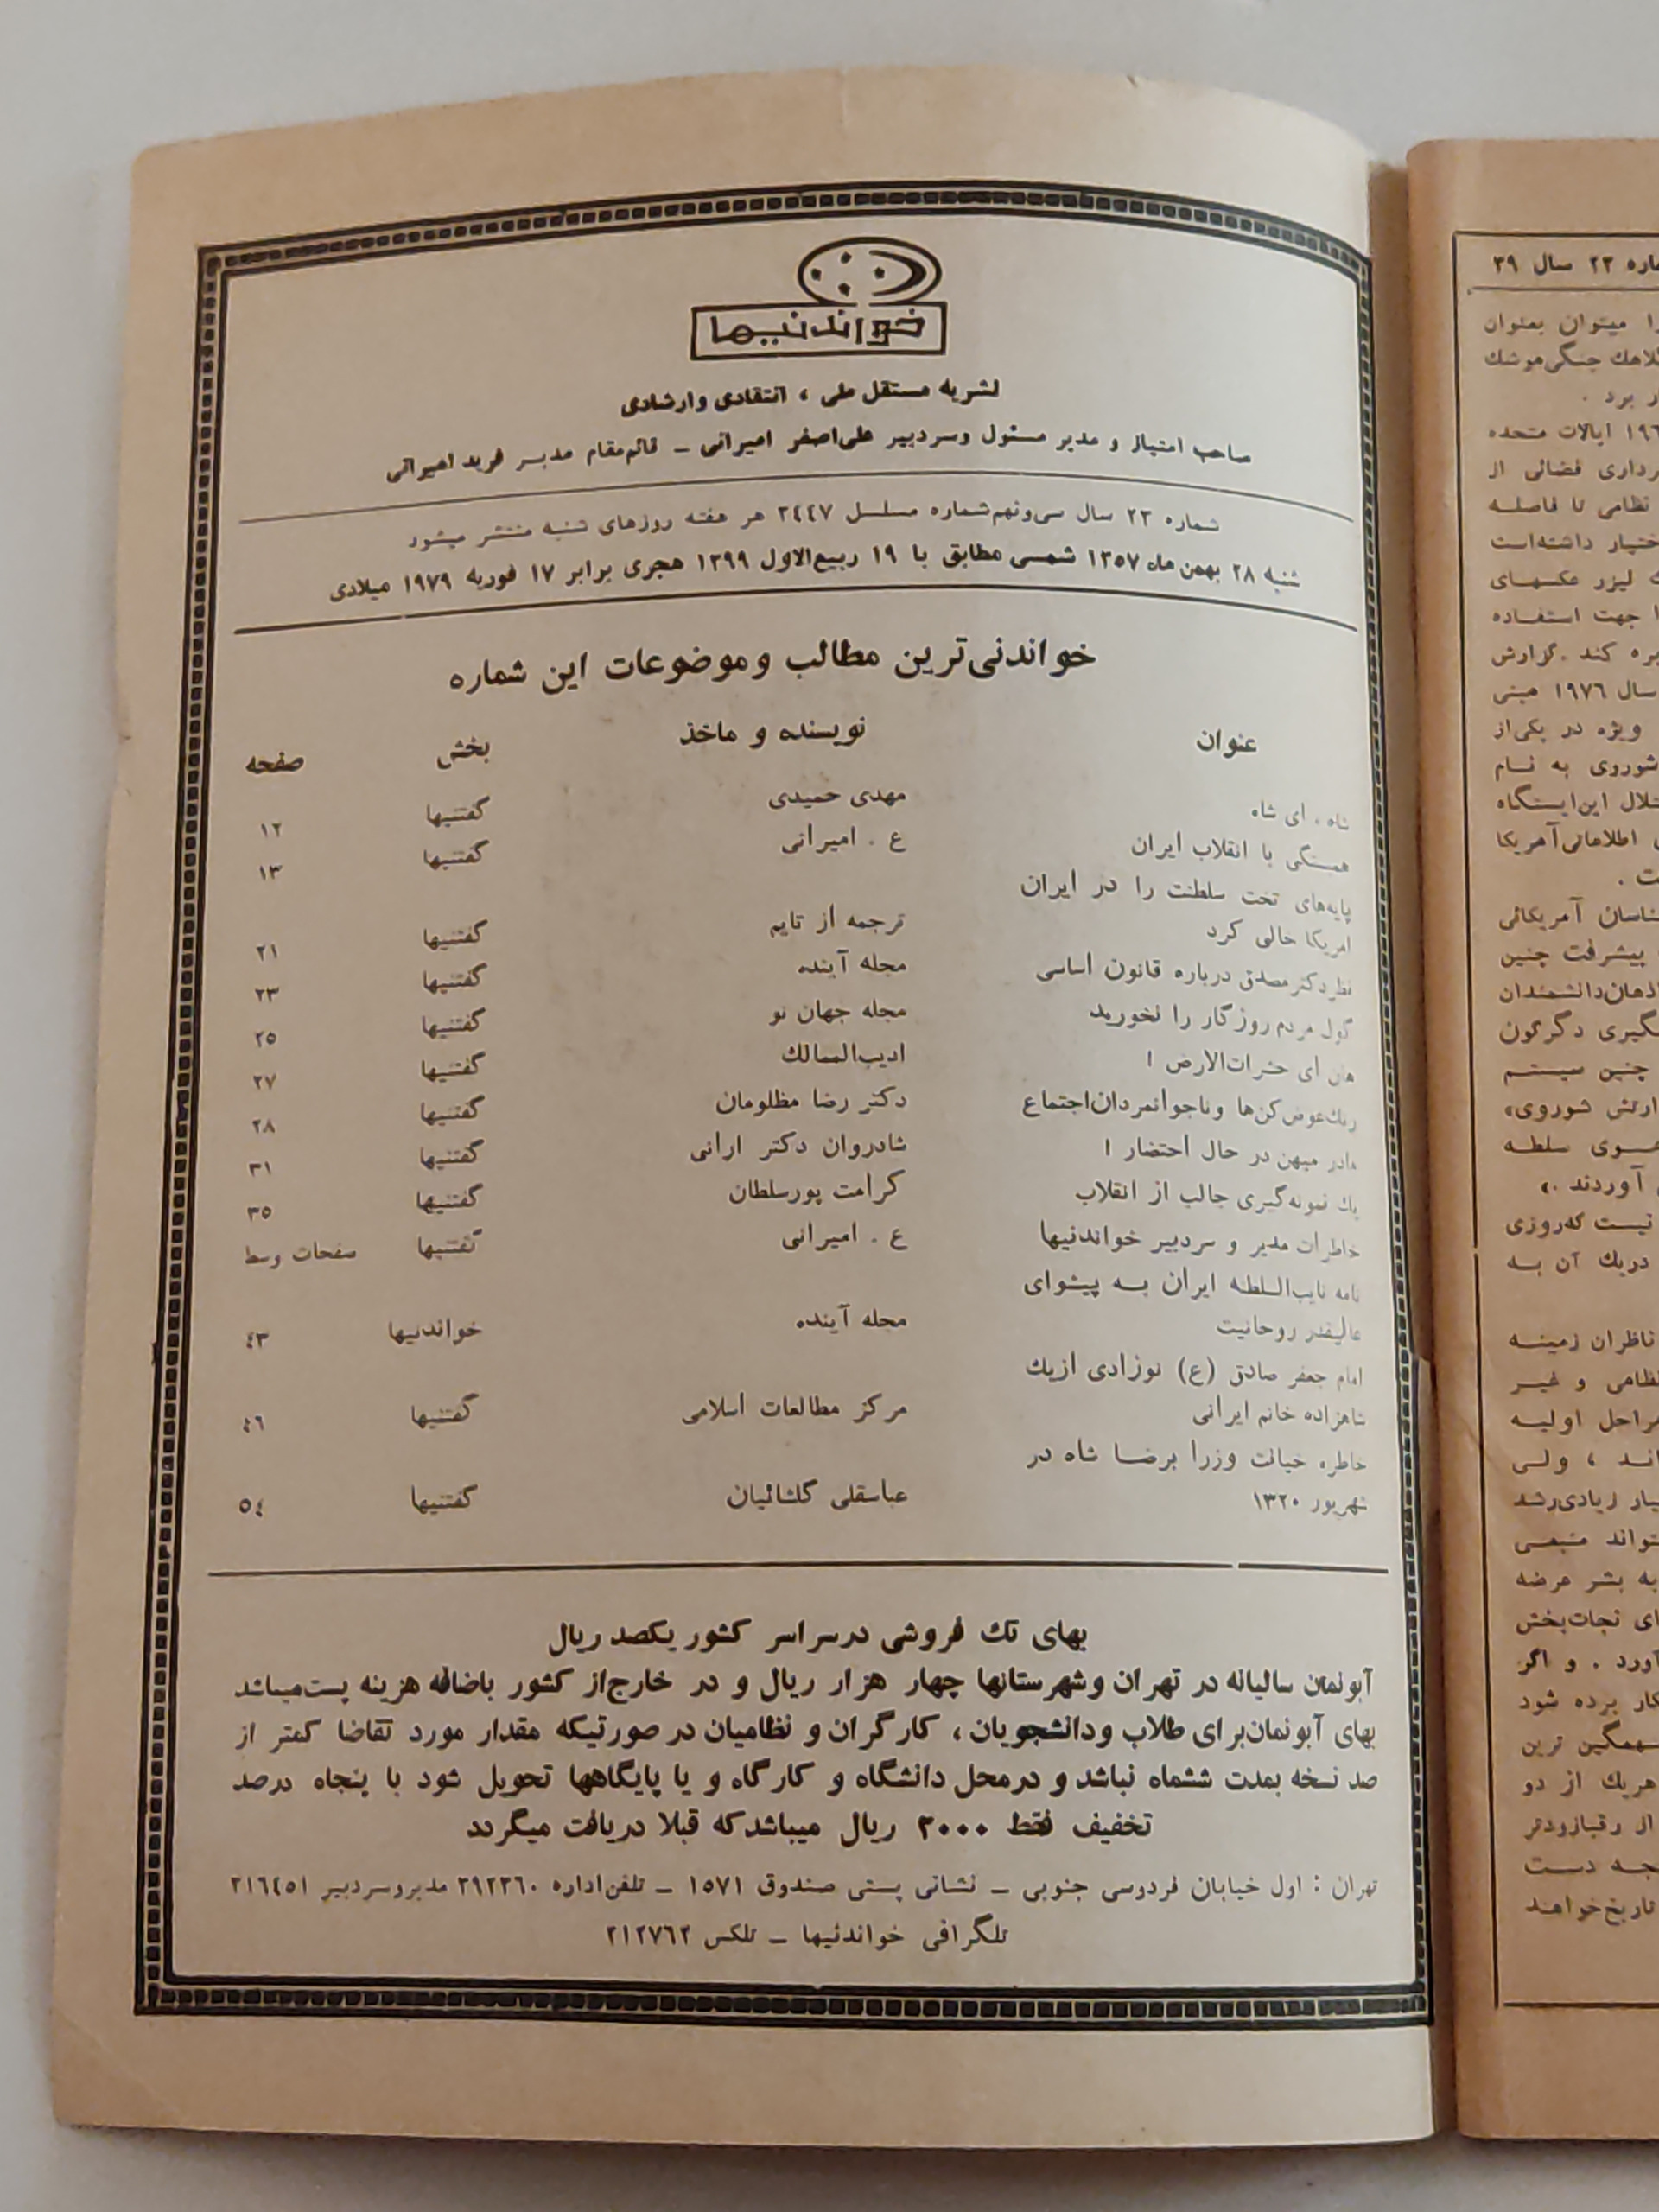 خواندنیها
نشریه مستقل ملی ، انتقادی وارشادی
صاحب امتیاز و مدیر مسئول وسردبیر علی‌اصغر امیرانی – قائم‌مقام مدیر فرید امیرانی
شماره ۲۳ سال سی‌ونهم شماره مسلسل ۲٤٤۷ هر هفته روزهای شنبه منتشر میشود
شنبه ۲۸ بهمن ماه ۱۳۵۷ شمسی مطابق با ۱۹ ربیع‌الاول ۱۳۹۹ هجری برابر ۱۷ فوریه ۱۹۷۹ میلادی
خواندنی‌ترین مطالب وموضوعات این شماره
عنوان نویسنده و ماخذ بخش صفحه
شاه . ای شاه مهدی حمیدی گفتنیها ۱۲
همبستگی با انقلاب ایران ع . امیرانی گفتنیها ۱۳
پایه‌های تخت سلطنت را در ایران
امریکا خالی کرد ترجمه از تایم گفتنیها ۲۱
نظر دکتر مصدق درباره قانون اساسی مجله آینده گفتنیها ۲۳
گول مردم روزگار را نخورید مجله جهان نو گفتنیها ۲۵
هان ای حشرات‌الارض ! ادیب‌الممالك گفتنیها ۲۷
رنك‌عوض‌کن‌ها وناجوانمردان‌اجتماع دکتر رضا مظلومان گفتنیها ۲۸
مادر میهن در حال احتضار ! شادروان دکتر ارانی گفتنیها ۳۱
یك نمونه‌گیری جالب از انقلاب کرامت پورسلطان گفتنیها ۳۵
خاطرات مدیر و سردبیر خواندنیها ع . امیرانی گفتنیها صفحات وسط
نامه نایب‌السلطنه ایران بـه پیشوای
عالیقدر روحانیت مجله آینده خواندنیها ٤۳
امام جعفر صادق (ع) نوزادی ازیك
شاهزاده خانم ایرانی مرکز مطالعات اسلامی گفتنیها ٤٦
خاطره خیانت وزرا برضـا شاه در
شهریور ۱۳۲۰ عباسقلی گلشائیان گفتنیها ٥٤
بهای تك فروشی درسراسر کشور یکصد ریال
آبونمان سالیانه در تهران وشهرستانها چهار هزار ریال و در خارج‌از کشور باضافه هزینه پست‌میباشد
بهای آبونمان‌برای طلاب ودانشجویان، کارگران و نظامیان در صورتیکه مقدار مورد تقاضا کمتر از
صد نسخه بمدت ششماه نباشد و درمحل دانشگاه و کارگاه و یا پایگاهها تحویل شود با پنجاه درصد
تخفیف فقط ۲۰۰۰ ریال میباشدکه قبلا دریافت میگردد
تهران : اول خیابان فردوسی جنوبی – نشانی پستی صندوق ۱۵۷۱ – تلفن‌اداره ۳۹۲۳٦۰ مدیروسردبیر ۳۱٦٤۵۱
تلگرافی خواندنیها – تلکس ۲۱۲۷٦۲
ماره ۲۳ سال ۳۹
را میتوان بعنوان
جنگی‌موشك
ر برد .
ایالات متحده
رداری فضائی از
نظامی تا فاصلـه
ختیار داشته‌است
لیزر عکسهای
جهت استفـاده
یره کند .گزارش
سال ۱۹۷٦ مبنی
ویژه در یکی‌از
شوروی به نـام
این‌ایستگاه
اطلاعاتی‌آمریکا
ت .
آمریکائی
پیشرفت چنین
ذهان‌دانشمندان
دگرگون
چنین سیستم
ارتش شوروی»
سـوی سلطه
آوردند .»
نیست که‌روزی
دریك آن بـه
ناظران زمینـه
نظامی و غیـر
مراحل اولیـه
انـد ، ولـی
یار زیادی‌رشد
تواند منبعـی
به بشر عرضه
ای نجات‌بخش
آورد . و اگر
کار برده شود
سهمگین ترین
هریك از دو
از رقبازودتر
دسـت
تاریخ‌خواهـد